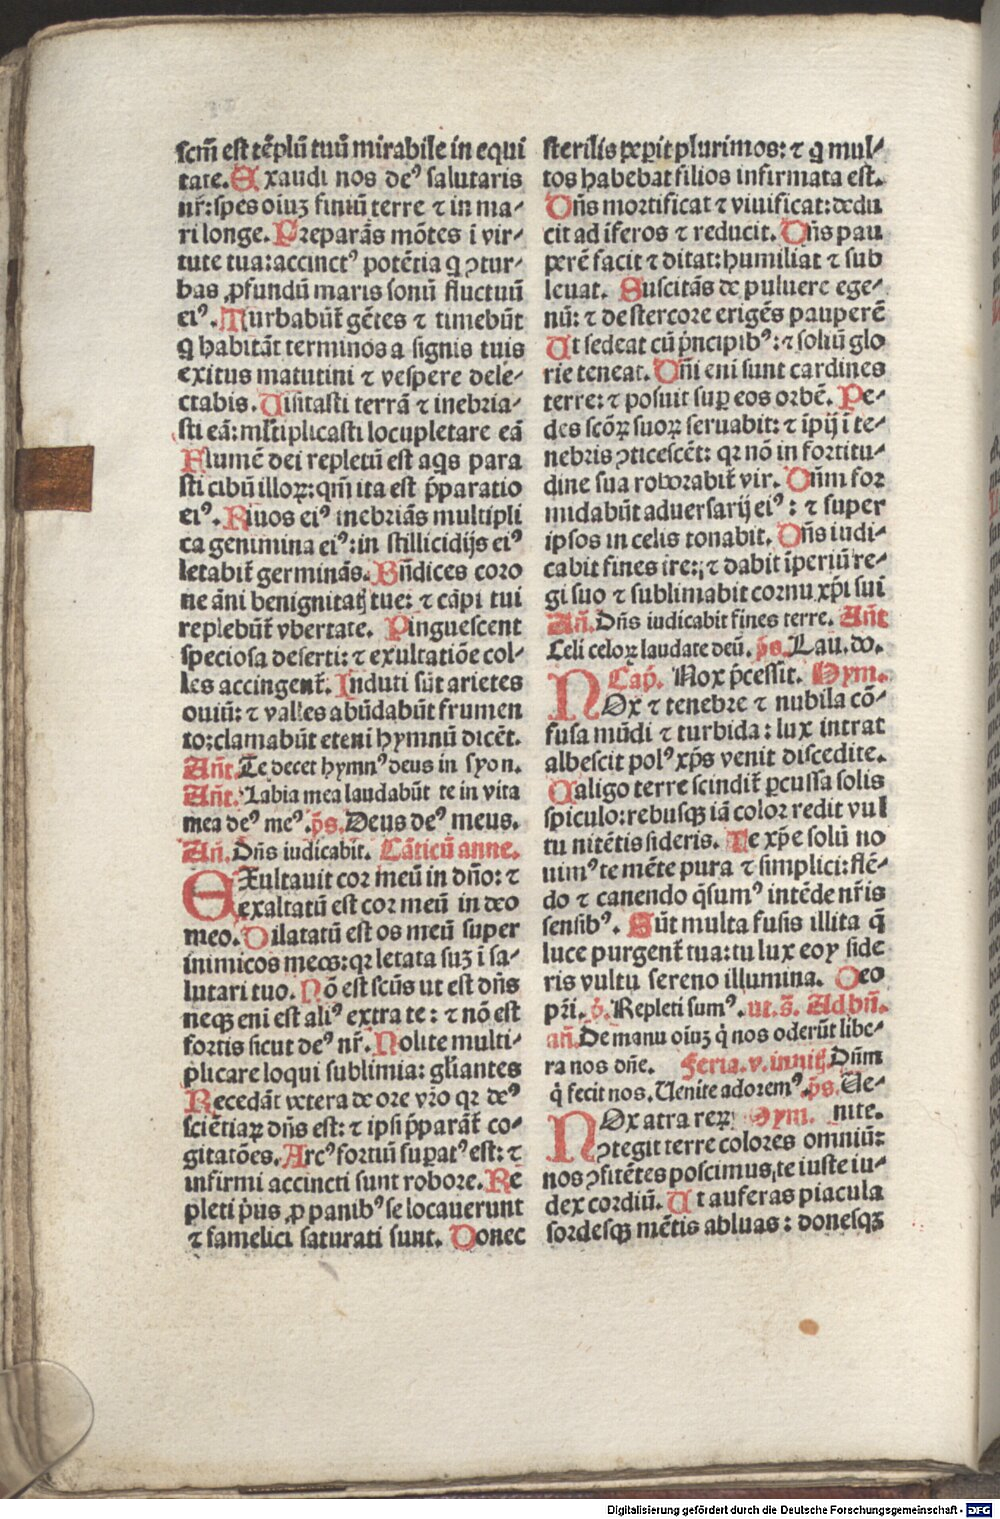 scm̃ est tẽplũ tuũ mirabile in equi
tate. Exaudi nos deꝰ salutaris
nr̃: spes oiuꝫ finiũ terre ⁊ in ma⸗
ri longe. Preparãs mõtes ĩ vir⸗
tute tua: accinctꝰ potẽtia q ꝯtur⸗
bas ꝓfundũ maris sonũ fluctuũ
eiꝰ. Turbabũt̃ gẽtes ⁊ timebũt
q habitãt terminos a signis tuis
exitus matutini ⁊ vespere dele⸗
ctabis. Uisitasti terrã ⁊ inebria⸗
sti eã: ml̃tiplicasti locupletare eã
Flumẽ dei repletũ est aq̃s para
sti cibũ illoꝝ: qm̃ ita est p̃paratio
eiꝰ. Riuos eiꝰ inebriãs multipli
ca genimina eiꝰ: in stillicidijs eiꝰ
letabit̃ germinãs. Bñdices coro
ne ãni benignitatꝭ tue: ⁊ cãpi tui
replebũt̃ vbertate. Pinguescent
speciosa deserti: ⁊ exultatiõe col⸗
les accingent̃. Induti sũt arietes
ouiũ: ⁊ valles abũdabũt frumen
to: clamabũt eteni hymnũ dicẽt.
Añt. Te decet hymnꝰ deus in syon.
Añt. Labia mea laudabũt te in vita
mea deꝰ meꝰ. ps̃. Deus deꝰ meus.
Añ. Dñs iudicabit. Cãticũ anne.
EXultauit cor meũ in dño: ⁊
exaltatũ est cor meũ in deo
meo. Dilatatũ est os meũ super
inimicos meos: qr letata suꝫ ĩ sa⸗
lutari tuo. Nõ est scũs ut est dñs
neqꝫ eni est aliꝰ extra te: ⁊ nõ est
fortis sicut deꝰ nr̃. Nolite multi⸗
plicare loqui sublimia: gl̃iantes
Recedãt vetera de ore vr̃o qr deꝰ
sciẽtiaꝝ dñs est: ⁊ ipsi p̃parãt̃ co⸗
gitatões. Arcꝰ fortiũ suꝑatꝰ est: ⁊
infirmi accincti sunt robore. Re
pleti p̃us ꝓ panibꝰ se locauerunt
⁊ famelici saturati sunt. Donec
sterilis peꝑit plurimos: ⁊ q mul⸗
tos habebat filios infirmata est.
Dñs mortificat ⁊ viuificat: dedu
cit ad ĩferos ⁊ reducit. Dñs pau
perẽ facit ⁊ ditat: humiliat ⁊ sub
leuat. Suscitãs de puluere ege⸗
nũ: ⁊ de stercore erigẽs pauperẽ
Ut sedeat cũ p̃ncipibꝰ: ⁊ soliũ glo
rie teneat. Dñi eni sunt cardines
terre: ⁊ posuit suꝑ eos orbẽ. Pe⸗
des scõꝝ suoꝝ seruabit: ⁊ ĩpij ĩ te⸗
nebris ꝯticescẽt: qr nõ in fortitu⸗
dine sua roborabit̃ vir. Dñm for
midabũt aduersarij eiꝰ: ⁊ super
ipsos in celis tonabit. Dñs iudi⸗
cabit fines tre: ⁊ dabit ĩperiũ re⸗
gi suo ⁊ sublimabit cornu xp̃i sui
Añ. Dñs iudicabit fines terre. Añt
Celi celoꝝ laudate deũ. ps̃. Lau. do.
Cap̃. Nox p̃cessit. Hym.
NOx ⁊ tenebre ⁊ nubila cõ⸗
fusa mũdi ⁊ turbida: lux intrat
albescit polꝰ xp̃s venit discedite.
Caligo terre scindit̃ ꝑcussa solis
spiculo: rebusqꝫ iã color redit vul
tu nitẽtis sideris. Te xp̃e solũ no
uimꝰ te mẽte pura ⁊ simplici: flẽ⸗
do ⁊ canendo q̃sumꝰ intẽde nr̃is
sensibꝰ. Sũt multa fusis illita q̃
luce purgent̃ tua: tu lux eoꝝ side
ris vultu sereno illumina. Deo
pr̃i. ꝟ. Repleti sumꝰ. ut. s̃. Ad bñ.
añ. De manu oiuꝫ q̃ nos oderũt libe⸗
ra nos dñe. Feria. v. inuitꝭ. Dñm
q̃ fecit nos. Uenite adoremꝰ. ps̃. Ue⸗
NOx atra reꝝ Hym. nite.
ꝯtegit terre colores omniũ:
nos ꝯfitẽtes poscimus, te iuste iu⸗
dex cordiũ. Ut auferas piacula
sordesqꝫ mẽtis abluas: donesqꝫ
Digitalisierung gefördert durch die Deutsche Forschungsgemeinschaft - DFG